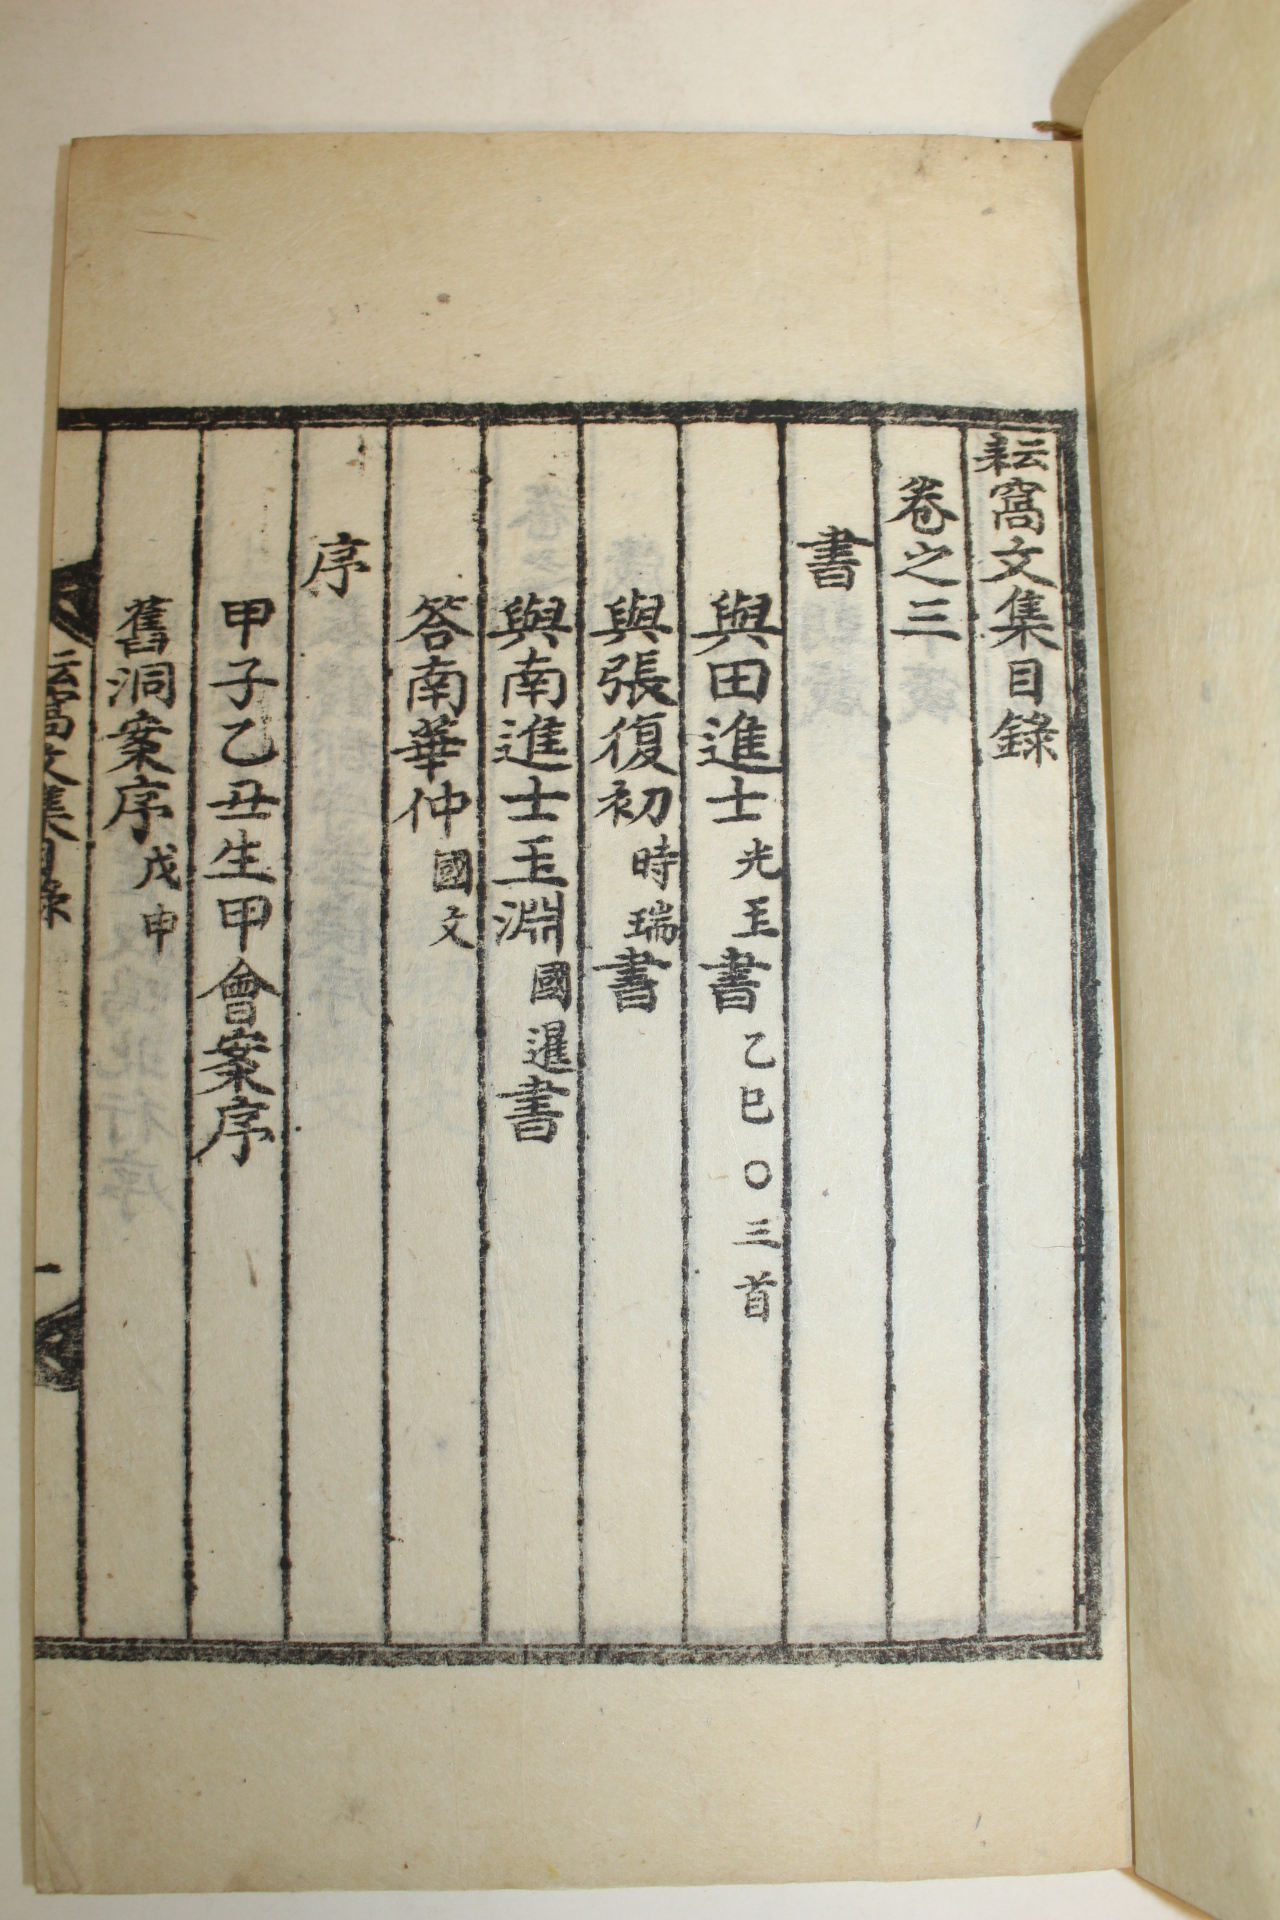 耘窩文集目錄
卷之三
書
與田進士光玉書乙巳○三首
與張復初時瑞書
與南進士玉淵國暹書
答南華仲國文
序
甲子乙丑生甲會案序
舊洞案序戊申
耘窩文集目錄 一